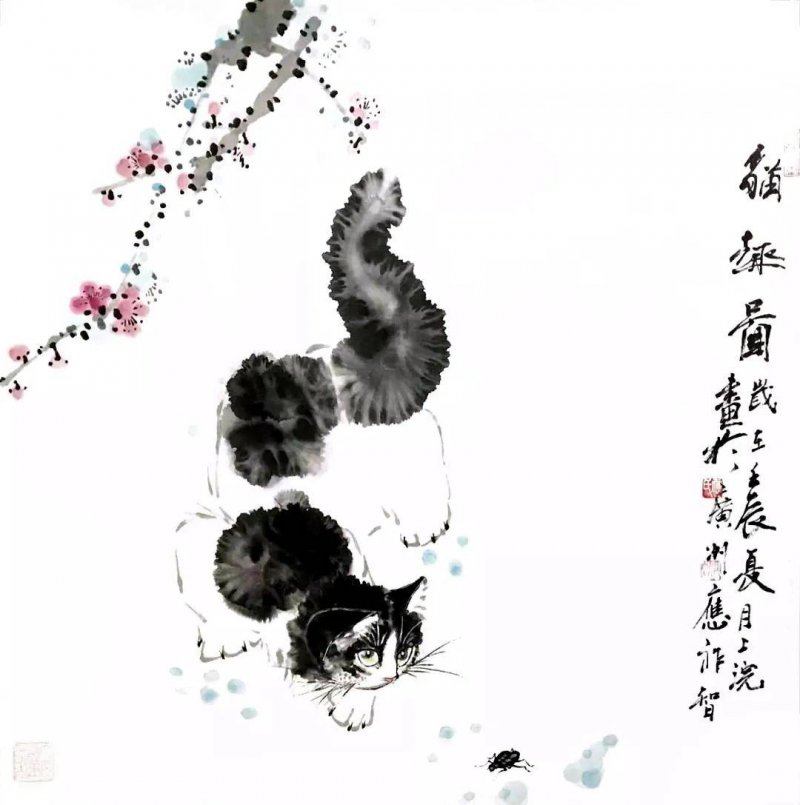 貓趣圖歲在壬辰夏月上浣
畫於廣州應祚智